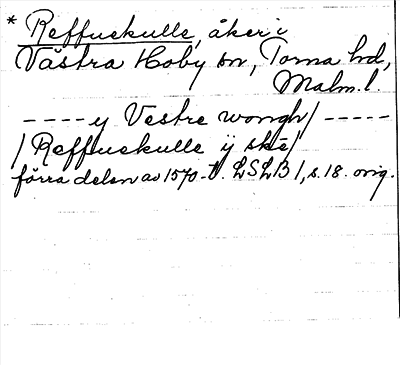 * Reffuekulle, åker i
Västra Hoby sn, Torna hd,
Malm. l.
----- y Vestre wongh / -----
/ Reffuekulle ÿ skē /
förra delen av 1570-t. LSLB 1, s. 18. orig.